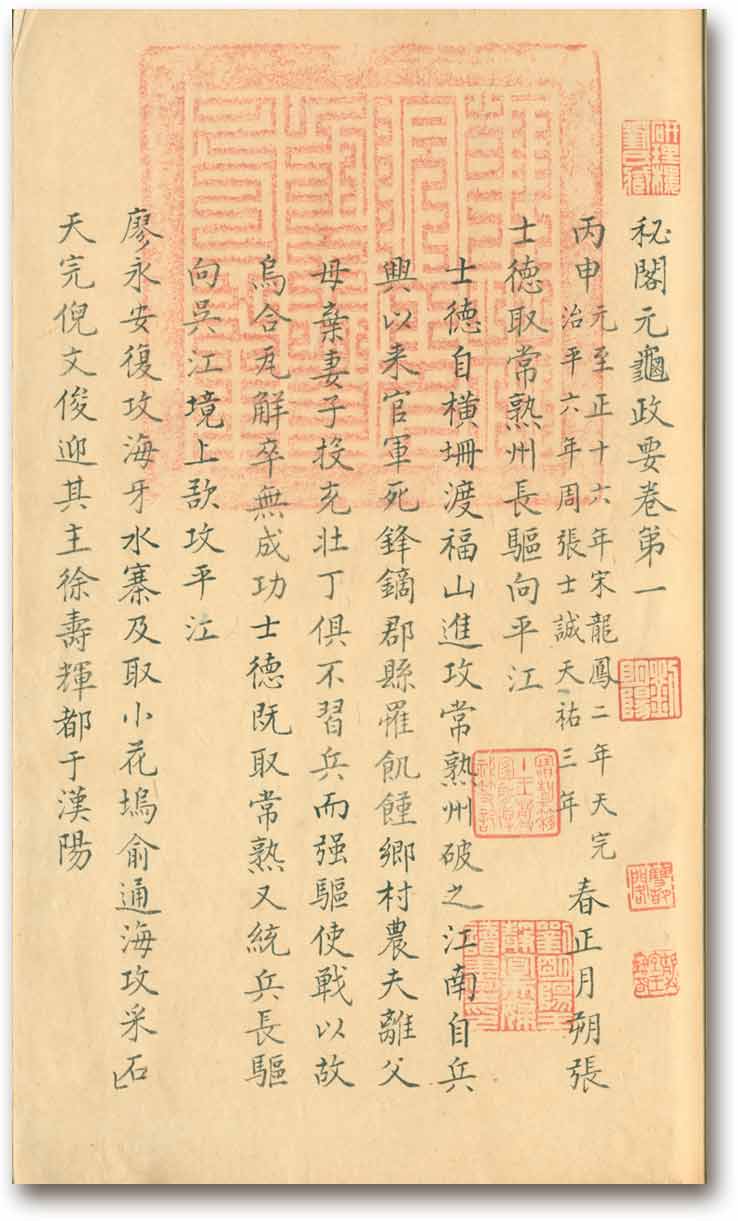 秘閣元龜政要卷第一
丙申元至正十六年宋龍鳳二年天完治平六年周張士誠天祐三年春正月朔張
士德取常熟州長驅向平江
士德自橫埘渡福山進攻常熟州破之江南自兵
興以来官軍死鋒鏑郡縣罹飢饉鄉村農夫離父
母棄妻子投充壯丁俱不習兵而强驅使戰以故
烏合瓦解卒無成功士德既取常熟又統兵長驅
向吳江境上欵攻平江
廖永安復攻海牙水寨及取小花塢俞通海攻采石
天完倪文俊迎其主徐壽輝都于漢陽